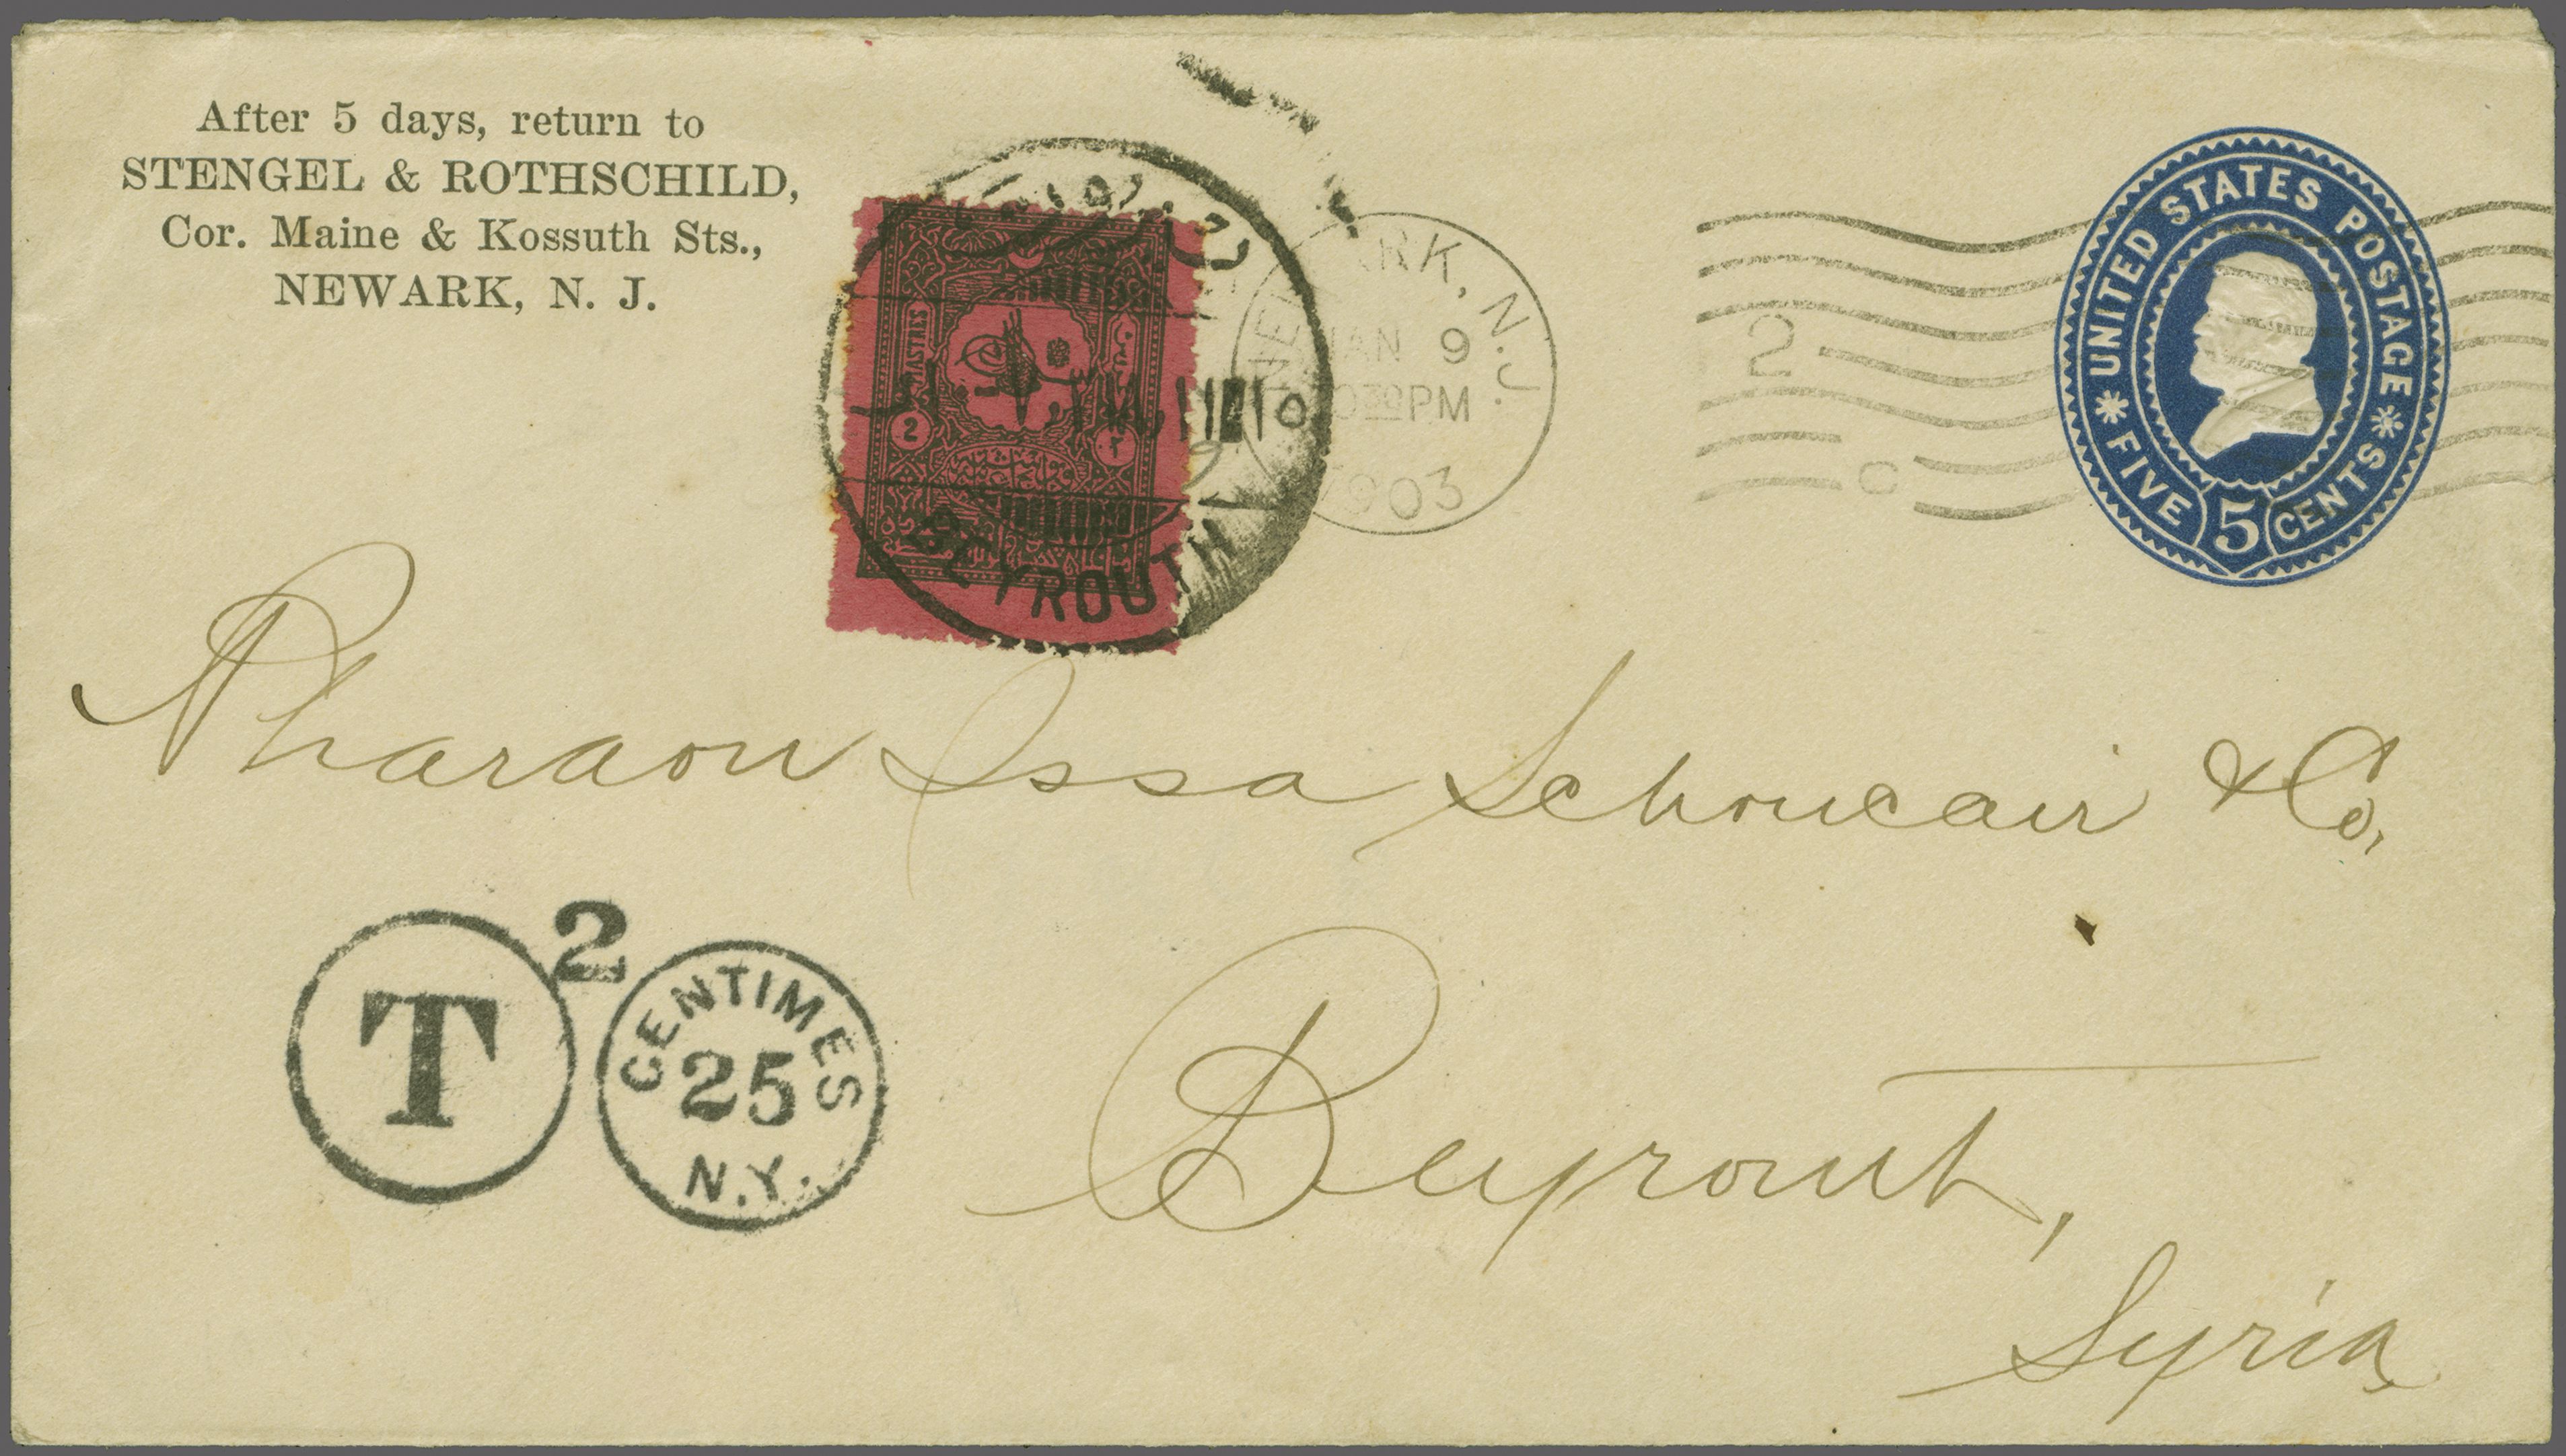 After 5 days, return to
STENGEL & ROTHSCHILD,
Cor. Maine & Kossuth Sts.,
NEWARK, N. J.
PIASTRES
2
٢
BEYROUTH
NEWARK, N.J.
JAN 9
PM
1903
2
C
UNITED STATES POSTAGE
FIVE 5 CENTS
Pharaon Issa Schoucair & Co,
T
2
CENTIMES
25
N.Y.
Beyrout,
Syria